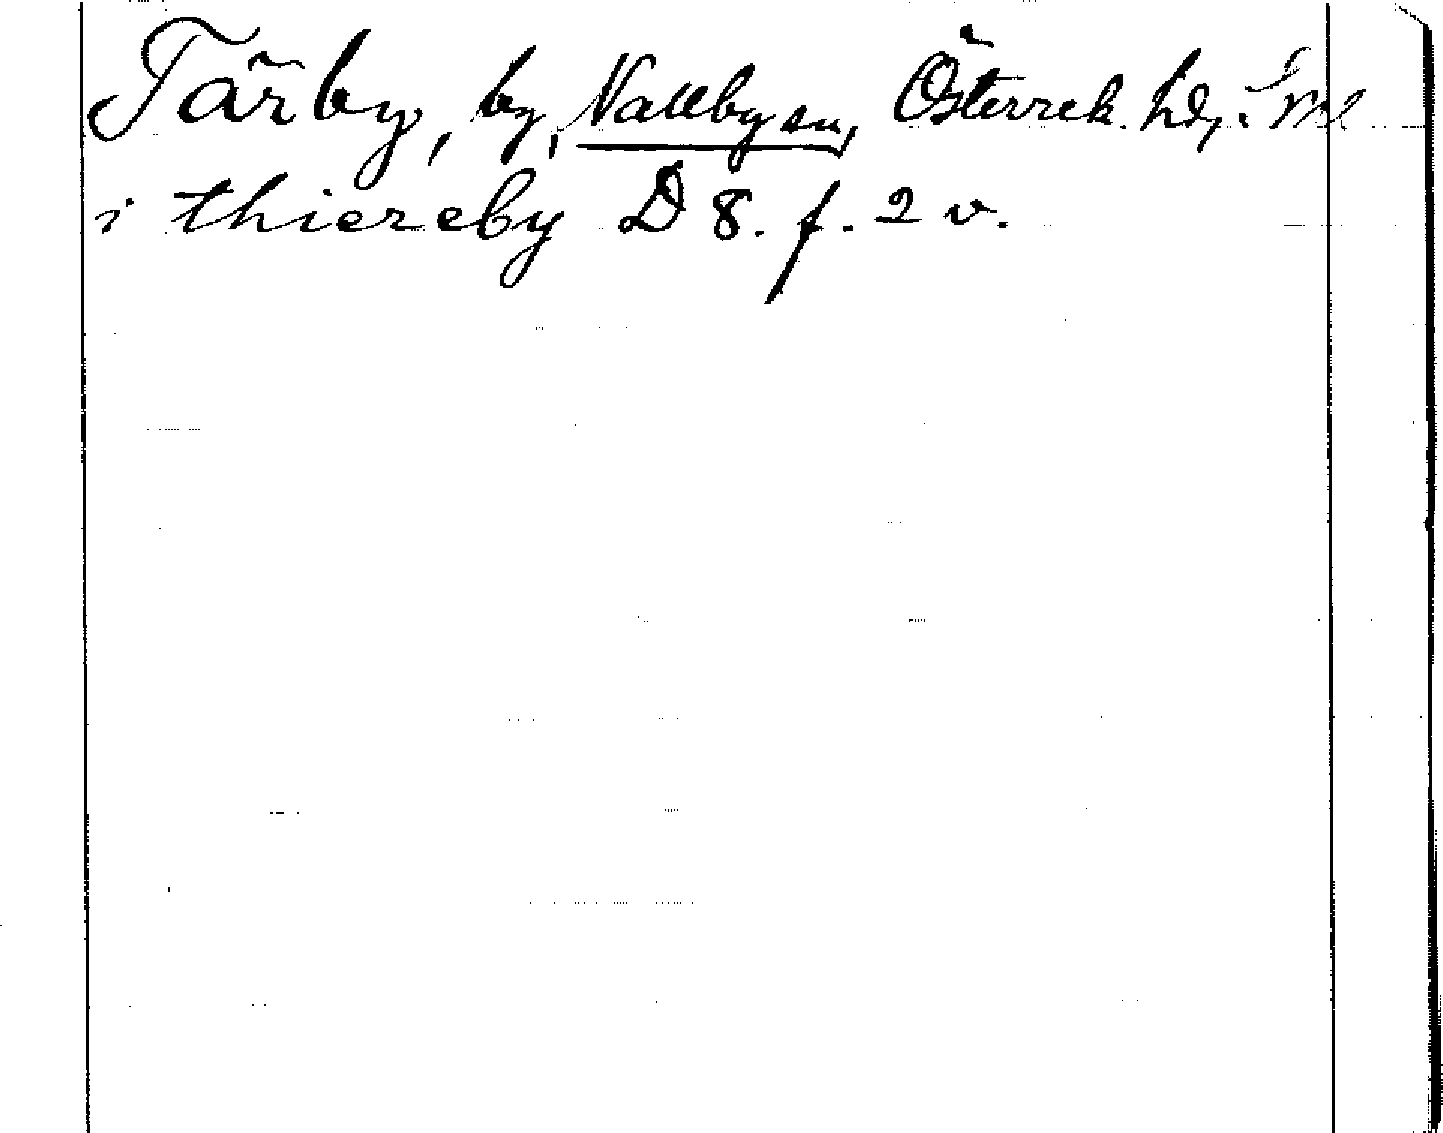 Tärby, by, Vallby sn, Österrek. hdg. Sml
i thiereby D 8. f. 2 v.